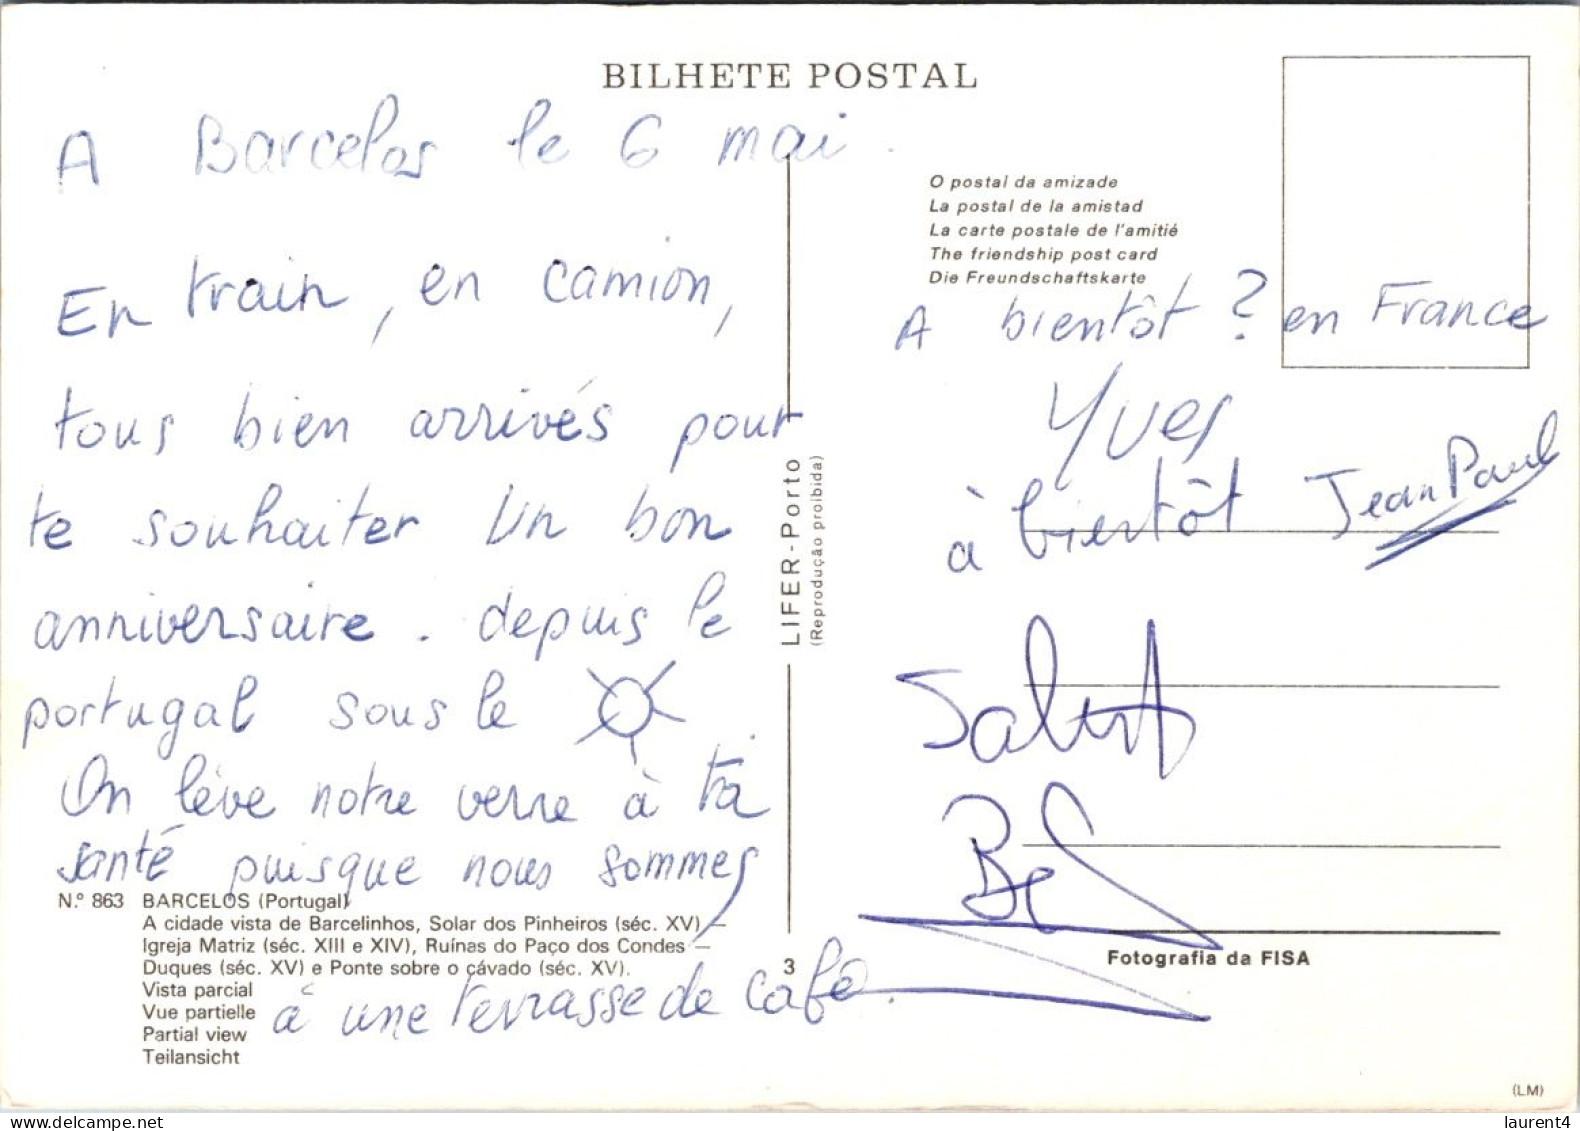 BILHETE POSTAL
A Barcelos le 6 mai.
En train, en camion,
tous bien arrivés pour
te souhaiter un bon
anniversaire. depuis le
portugal sous le
On lève notre verre à ta
santé puisque nous sommes
à une terrasse de café.
N.º 863 BARCELOS (Portugal)
A cidade vista de Barcelinhos, Solar dos Pinheiros (séc. XV) —
Igreja Matriz (séc. XIII e XIV), Ruínas do Paço dos Condes —
Duques (séc. XV) e Ponte sobre o cávado (séc. XV).
Vista parcial
Vue partielle
Partial view
Teilansicht
LIFER - Porto
(Reprodução proibida)
3
O postal da amizade
La postal de la amistad
La carte postale de l'amitié
The friendship post card
Die Freundschaftskarte
A bientôt ? en France
Yves
à bientôt Jean Paul
Salut
Fotografia da FISA
(LM)
laurent4